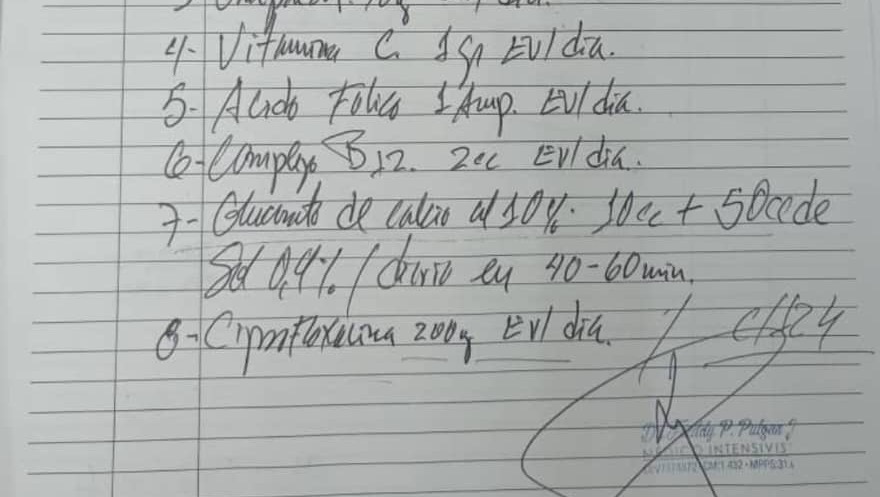 4- Vitamina C. 1gr EV/dia.
5- Acido Folico 1 Amp. EV/dia.
6- Complejo B12. 2cc EV/dia.
7- Gluconato de calcio al 10%. 10cc + 50cc de
Sol 0,9% / diario en 40-60min.
8- Ciprofloxacina 200g EV/dia. / c/24
P. Pulgar J
INTENSIVIS